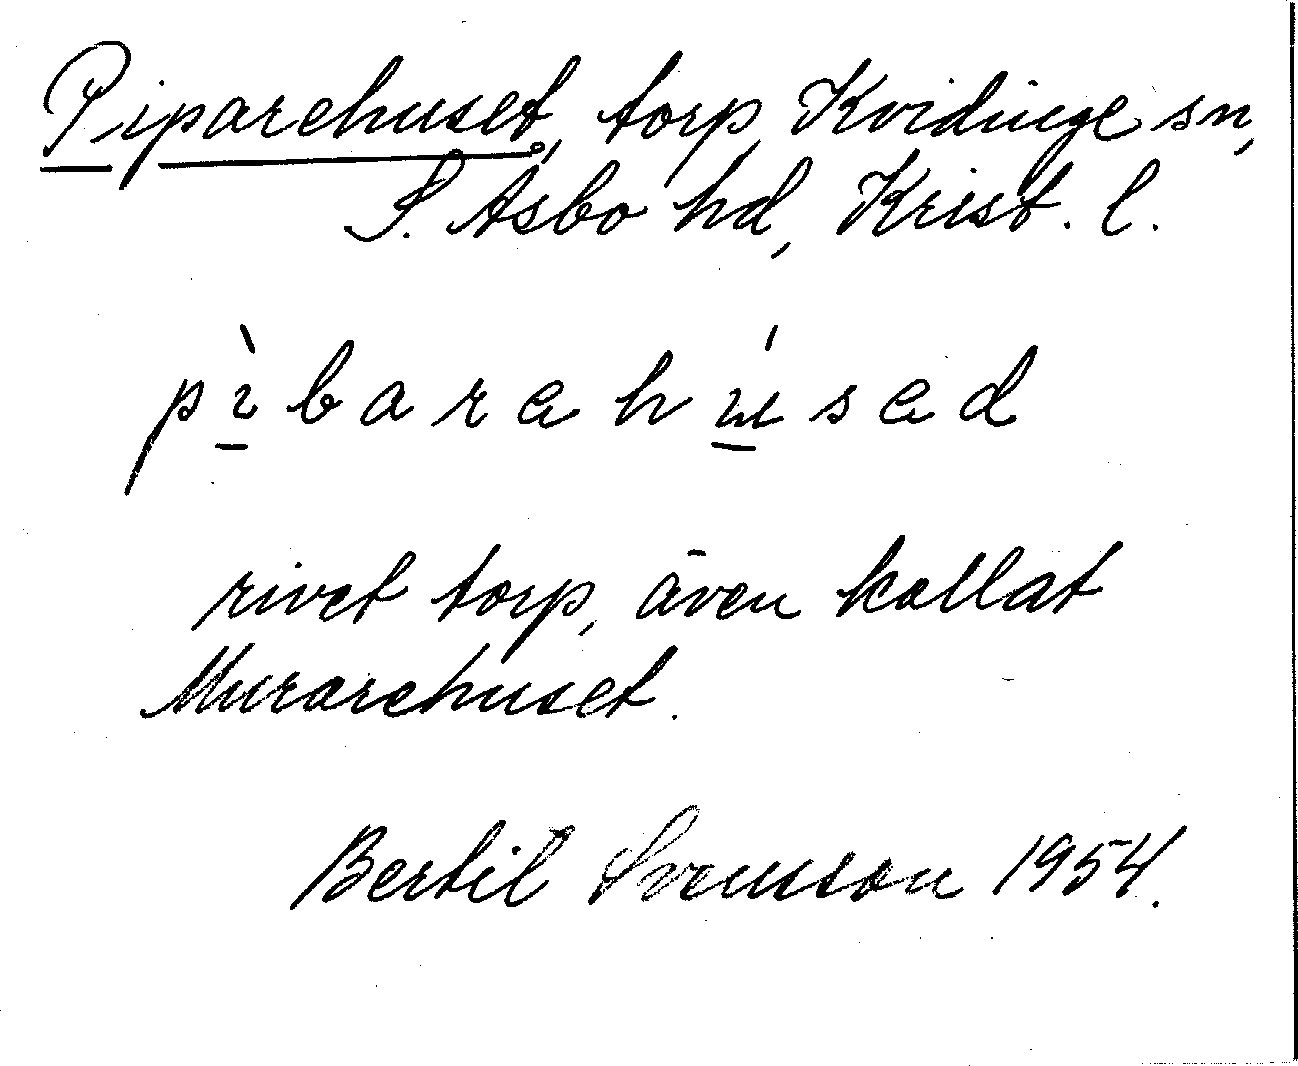 Piparehuset, torp, Kvidinge sn,
S. Åsbo hd, Krist. l.
pìbarahúsad
rivet torp, även kallat
Murarehuset.
Bertil Svensson 1954.